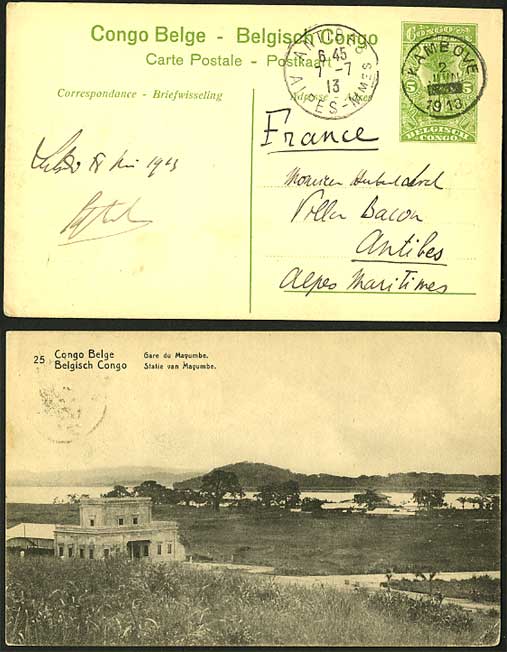 Congo Belge - Belgisch Congo
Carte Postale - Postkaart
Correspondance - Briefwisseling
ANTIBES
6 45
7 - 7
13
ALPES-MMES
CONGO
5 5
BELGISCH
CONGO
KAMBOVE
2
JUIN
1913
France
18 1913
Monsieur
Villa Bacon
Antibes
Alpes Maritimes
25 Congo Belge Gare du Mayumbe.
Belgisch Congo Statie van Mayumbe.